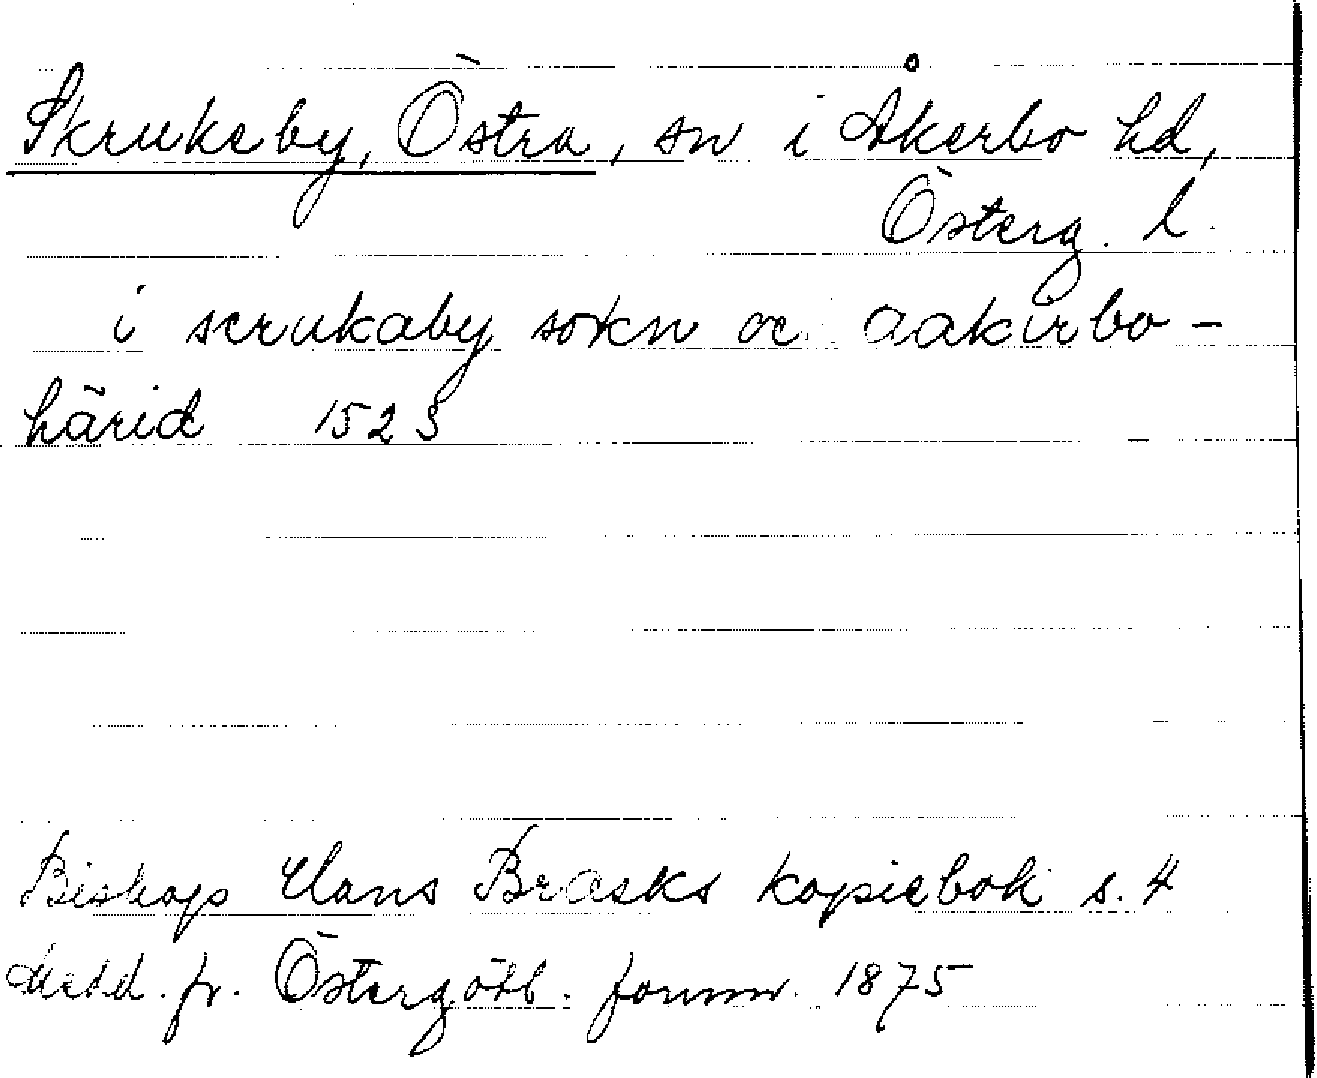 Skrukeby, Östra, sn i Åkerbo hd,
Österg. l.
i scrukaby sokn oc aakirbo-
härid 1523
Biskop Hans Brasks kopiebok s. 4
Medd. fr. Östergötl. fornm. 1875